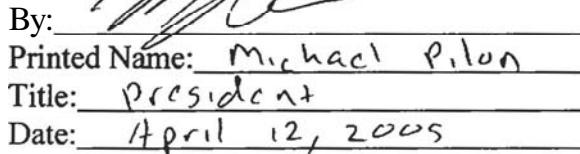 By:
Printed Name: Michael Pilon
Title: President
Date: April 12, 2005